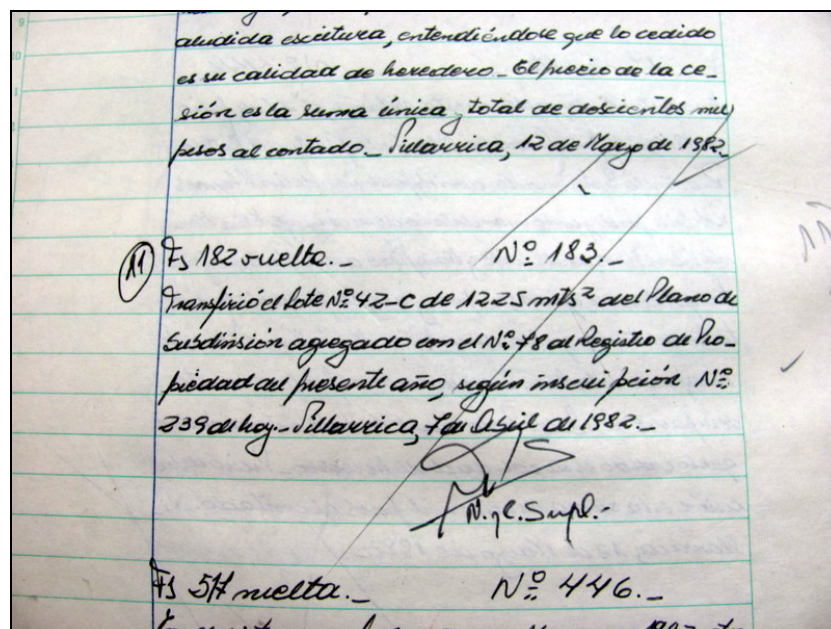 aludida escritura, entendiéndose que lo cedido
es su calidad de heredero._ El precio de la ce_
sión es la suma única y total de doscientos mil
pesos al contado._ Villarrica, 12 de Marzo de 1982._
11 Fs 182 vuelta._ Nº 183._
Transfirió el Lote Nº 42-C de 1225 mts² del Plano de
Subdivisión agregado con el Nº 78 al Registro de Pro_
piedad del presente año, según inscripción Nº
239 de hoy._ Villarrica, 7 de Abril de 1982._
N. y C. Supl.-
Fs 517 vuelta._ Nº 446._